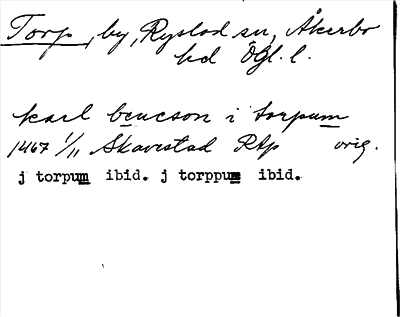 Torp, by, Rystad sn, Åkerbo
hd Ögl. l.
karl bencson i torpum
1467 1/11 Skavestad Rtp orig.
j torpum ibid. j torppum ibid.